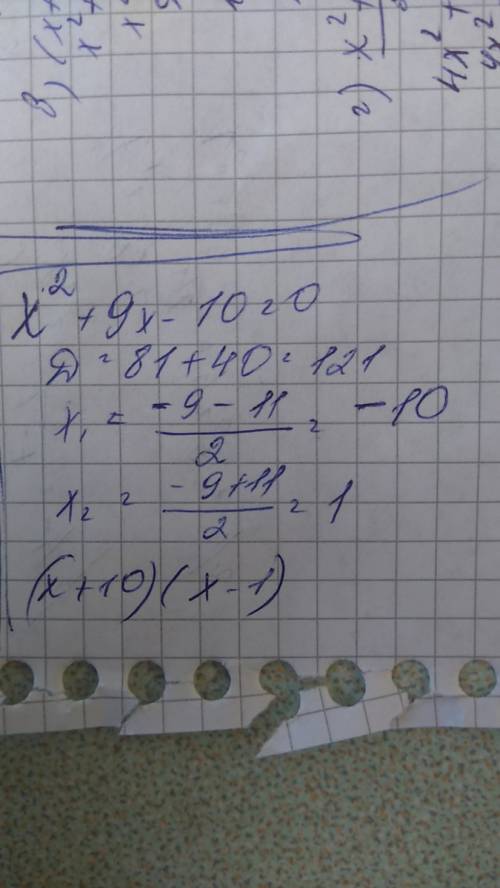 в) (x+
x²+
г) x²+
4x²+
4x²
x² + 9x - 10 = 0
D = 81 + 40 = 121
x₁ = (-9 - 11)/2 = -10
x₂ = (-9 + 11)/2 = 1
(x + 10)(x - 1)